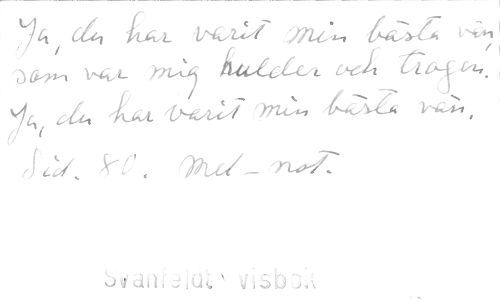 Ja, du har varit min bästa vän,
som var mig hulder och trogen.
Ja, du har varit min bästa vän.
Sid. 80. Mel-not.
Svanfeldt visbok